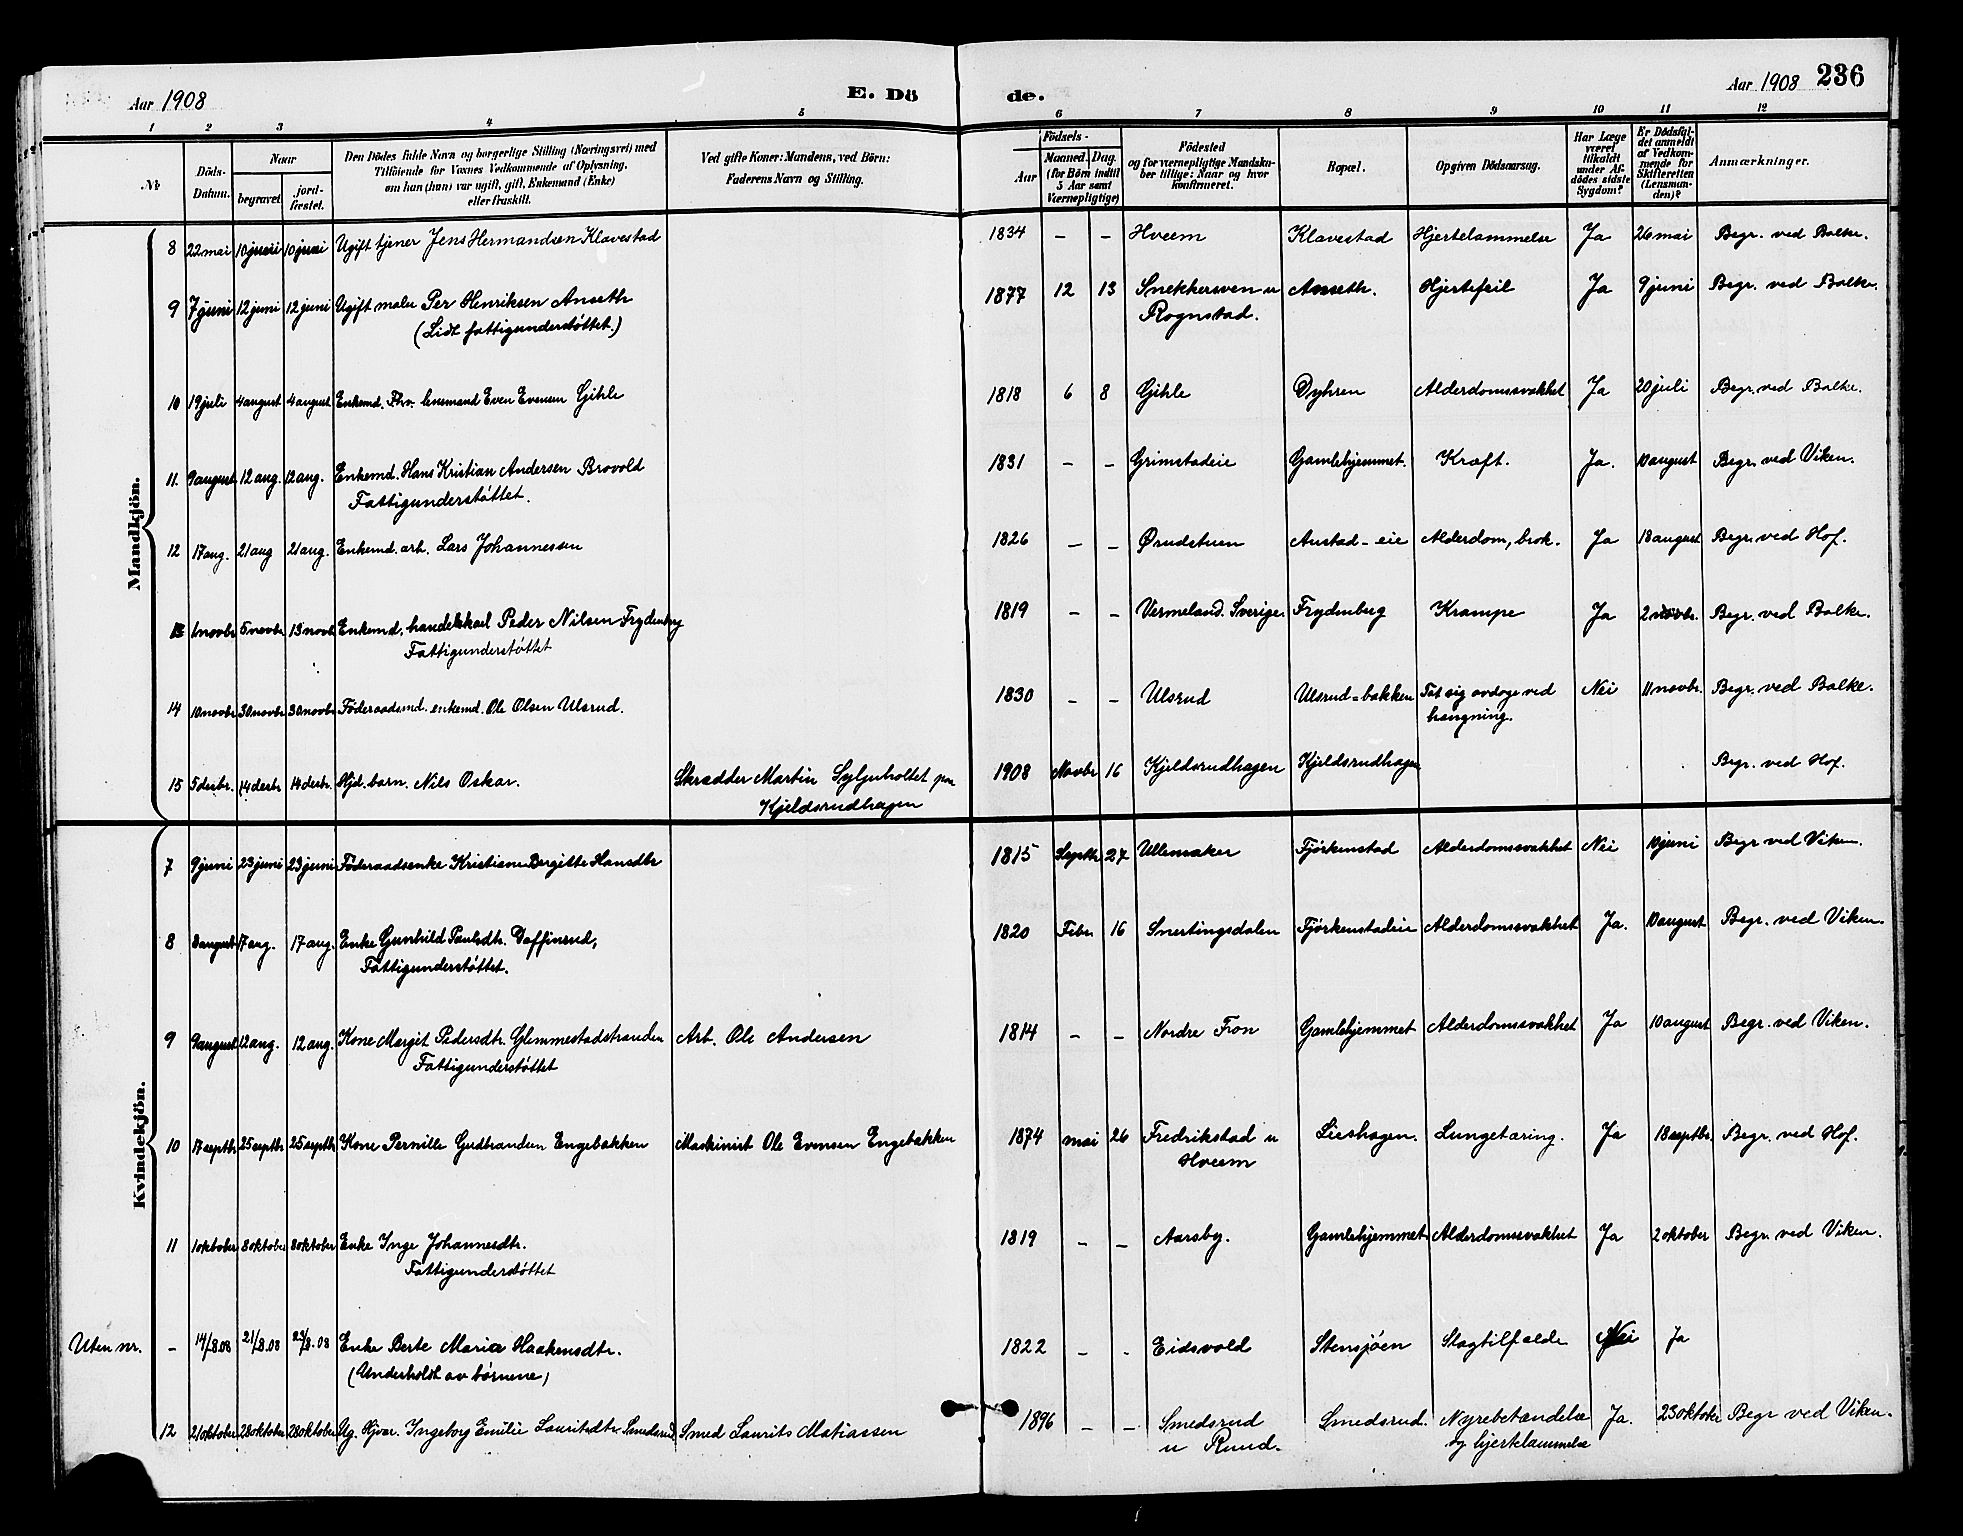 Aar 1908 E. Dö de. Aar 1908 236
1 2 3 4 5 6 7 8 9 10 11 12
№
Döds-
Datum.
Naar
begravet.
jord-
fæstet.
Den Dödes fulde Navn og borgerlige Stilling (Næringsvei) med
Tilföiende for Voxnes Vedkommende af Oplysning,
om han (hun) var ugift, gift, Enkemand (Enke)
eller fraskilt.
Ved gifte Koner: Mandens, ved Börn:
Faderens Navn og Stilling.
Födsels-
Aar
Maaned. Dag.
(for Börn indtil
5 Aar samt
Værnepligtige)
Födested
og for værnepligtige Mandskaber tillige: Naar og hvor
konfirmeret.
Bopæl.
Opgiven Dödsaarsag.
Har Læge
været
tilkaldt
under Afdödes sidste
Sygdom?
Er Dödsfaldet anmeldt
af Vedkommende for
Skifteretten
(Lensmanden)?
Anmærkninger.
Mandkjön.
8 22 mai 10 juni 10 juni Ugift tjener Jens Hermandsen Klavestad 1834 – – Hveem Klavestad Hjertelammelse Ja 26 mai Begr. ved Balke.
9 7 juni 12 juni 12 juni Ugift maler Per Henriksen Anseth 1877 12 13 Snekkersven u Anseth. Hjertefeil Ja 9 juni Begr. ved Balke.
(Lidt fattigunderstøttet.) Rognstad.
10 19 juli 4 august 4 august Enkemd. Fhv. lensmand Even Evensen Gihle 1818 6 8 Gihle Dyhren Alderdomssvakhet Ja 20 juli Begr. ved Balke.
11. 9 august 12 aug. 12 aug. Enkemd. Hans Kristian Andersen Brovold 1831 – – Grimstadeie Gamlehjemmet. Kræft. Ja. 10 august Begr. ved Viken.
Fattigunderstøttet.
12 17 aug. 21 aug 21 aug. Enkemd. arb. Lars Johannessen 1826 – – Ørudstuen Austad-eie Alderdom, brok. Ja 18 august Begr. ved Hof.
13 1 novbr 5 novbr 13 novbr Enkemd. handelskarl Peder Nilsen Frydenberg 1819 – – Vermeland. Sverige. Frydenberg Krampe Ja 2 novbr. Begr. ved Balke.
Fattigunderstøttet
14 10 novbr 30 novbr 30 novbr Føderaadsmd. enkemd. Ole Olsen Ulsrud. 1830 – – Ulsrud Ulsrud-bakken Tat sig avdage ved Nei 11 novbr. Begr. ved Balke.
hængning.
15 5 desbr. 14 desbr 14 desbr. Gjd. barn. Nils Oskar. Skrædder Martin Syljuholtet paa 1908 Novbr 16 Kjeldsrudhagen Kjeldsrudhagen Begr. ved Hof.
Kjeldsrudhagen
Kvindekjön.
7 9 juni 23 juni 23 juni Føderaadsenke Kristiane Bergitte Hansdtr 1815 Septbr 27 Ullensaker Fjørkenstad Alderdomssvakhet Nei 10 juni Begr ved Viken.
8 8 august 17 aug. 17 aug. Enke Gunhild Paulsdtr. Daffinrud, 1820 Febr 16 Snertingsdalen Fjørkenstadeie Alderdomssvakhet Ja. 10 august Begr. ved Viken.
Fattigunderstøttet.
9 9 august 12 aug. 12 aug. Kone Margit Pedersdtr. Glemmestadstranden Arb. Ole Andersen 1814 – – Nordre Fron Gamlehjemmet Alderdomssvakhet Ja 10 august Begr. ved Viken.
Fattigunderstøttet
10 17 septbr 25 septbr 25 septbr Kone Pernille Gudbrandsen Engebakken Maskinist Ole Evensen Engebakken 1874 mai 26 Fredrikstad u Lieshagen. Lungetæring. Ja 18 septbr. Begr. ved Hof.
Hveem
11 1 oktober 8 oktober 8 oktober Enke Inge Johannesdtr. 1819 – – Aarsby. Gamlehjemmet Alderdomssvakhet Ja 2 oktober Begr. ved Viken.
Fattigunderstøttet
Uten nr. – 14/8.08 21/8.08 23/8.08 Enke Berte Maria Haakensdtr. 1822 – – Eidsvold Stensjøen Slagtilfælde Nei Ja
(Underholdt av børnene)
12 21 oktober 28 oktober 28 oktober Ug. Hjvær. Ingeborg Emilie Lauritsdtr Smedsrud Smed Laurits Matiassen 1896 – – Smedsrud Smedsrud. Nyrebetændelse Ja. 23 oktober Begr ved Viken.
u Ruud. og hjertelammelse